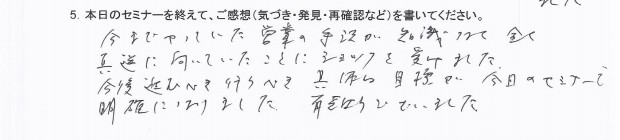 5. 本日のセミナーを終えて、ご感想（気づき・発見・再確認など）を書いてください。
今までやっていた 営業の手段が 知識 全く
真逆に向いていたことにショックを受けました。
今後進むべき 行うべき 具体的 目標が 今日のセミナーで
明確になりました。 有難うございました